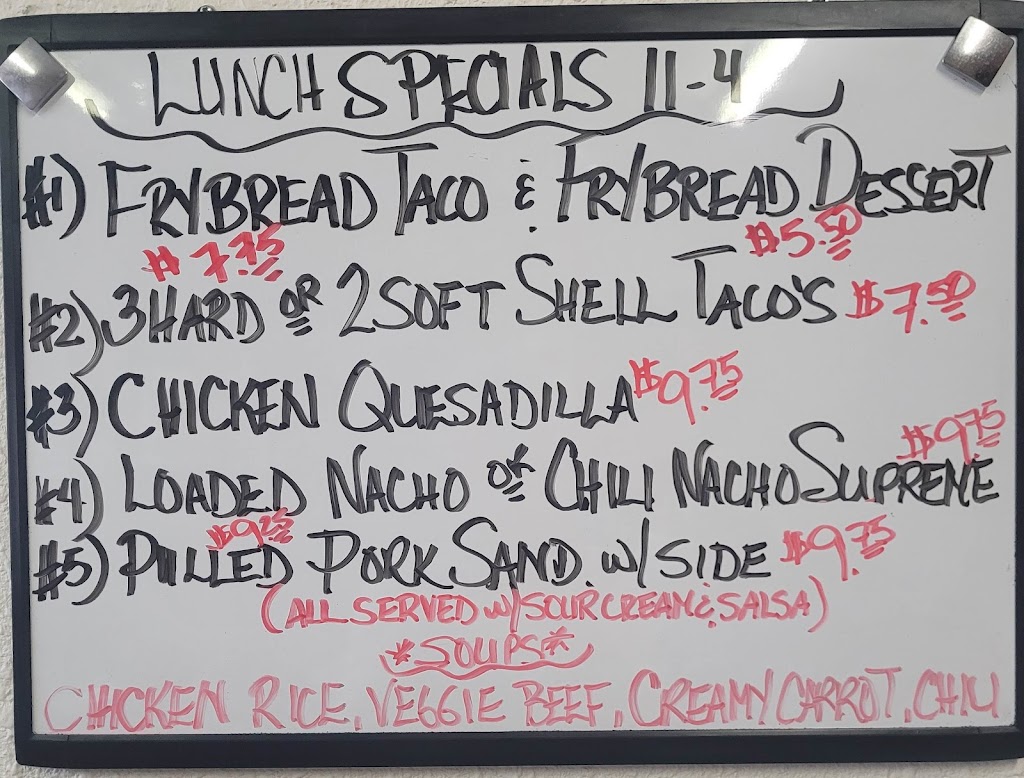 LUNCH SPECIALS 11-4
#1) FRYBREAD TACO & FRYBREAD DESSERT
$7.75 $5.50
#2) 3 HARD OR 2 SOFT SHELL TACO'S $7.50
#3) CHICKEN QUESADILLA $9.75
$9.75
#4) LOADED NACHO OR CHILI NACHO SUPREME
$9.25
#5) PULLED PORK SAND. W/ SIDE $9.75
(ALL SERVED W/ SOUR CREAM & SALSA)
*SOUPS*
CHICKEN RICE, VEGGIE BEEF, CREAMY CARROT, CHILI